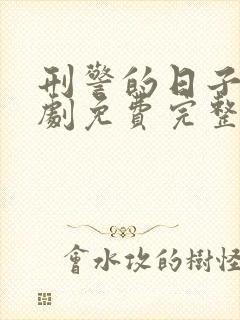 刑警的日子
劇免費完整
會水攻的樹怪